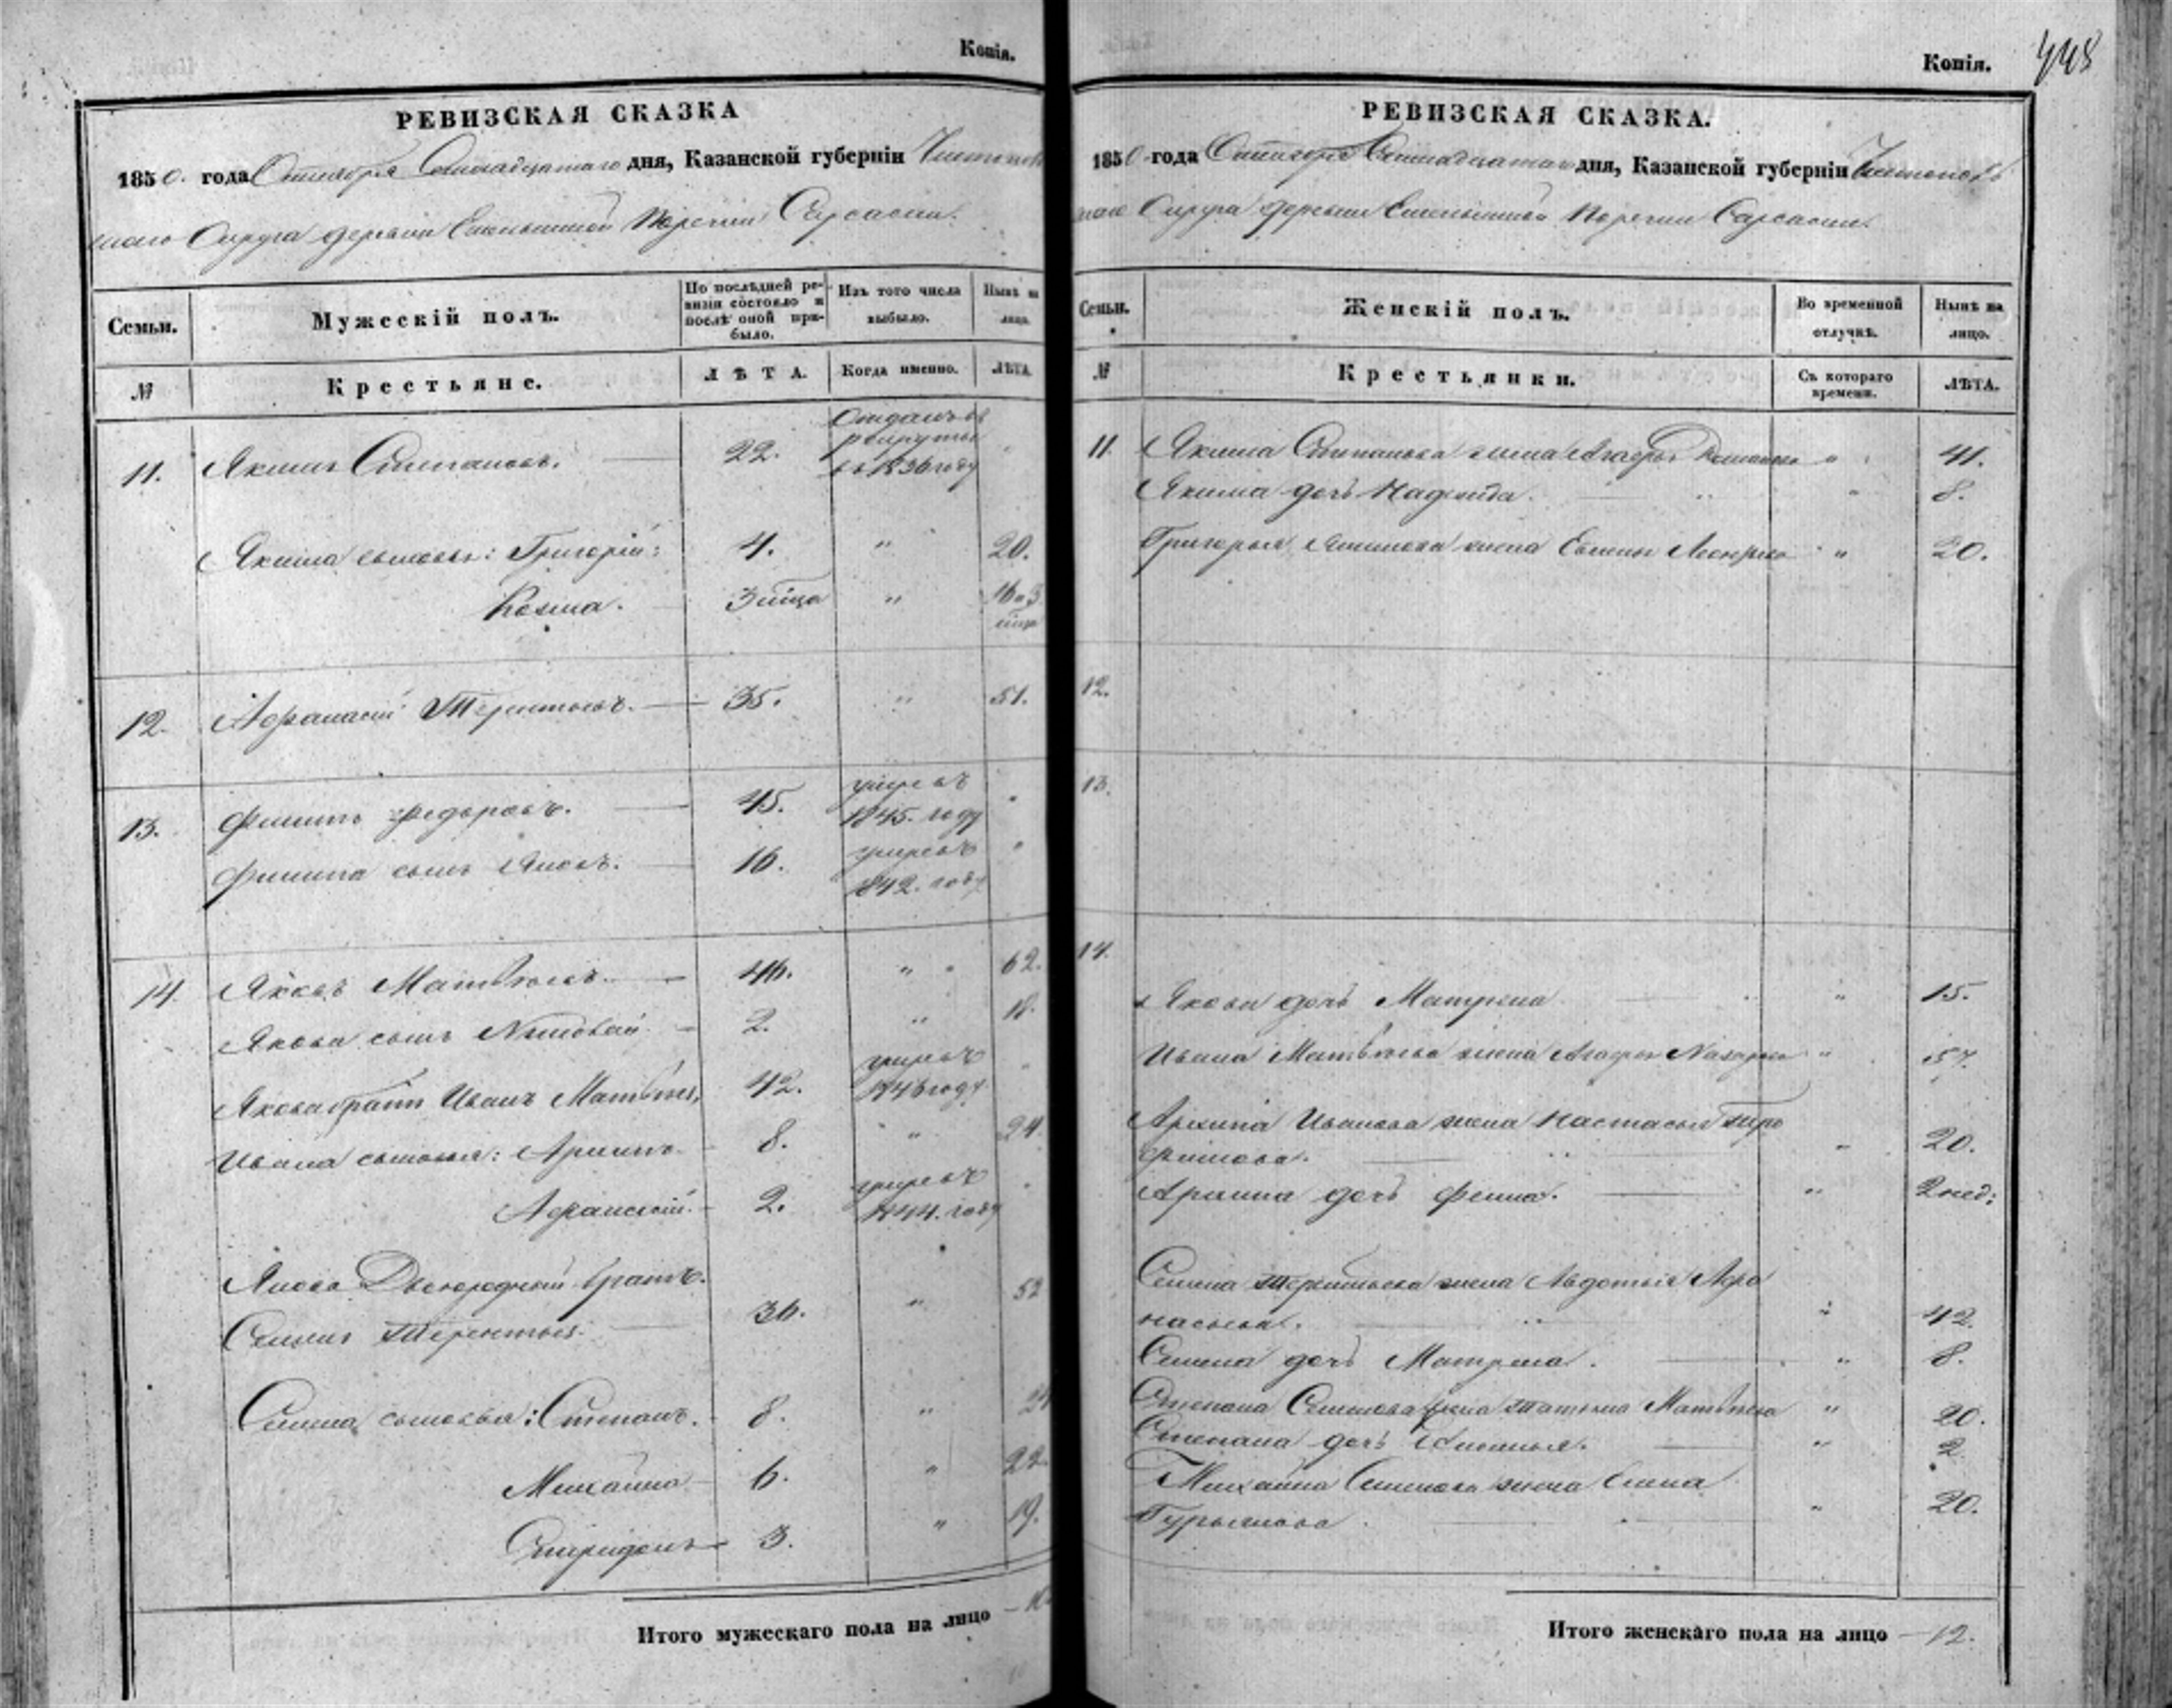 Копія.
РЕВИЗСКАЯ СКАЗКА
1850. года Октября дня, Казанской губерніи
Округа деревни
Семьи.
Мужескій полъ.
По послѣдней ревизіи состояло и послѣ оной прибыло.
Изъ того числа выбыло.
Нынѣ на лицо.
№
Крестьяне.
ЛѢТА.
Когда именно.
ЛѢТА.
11. Якимъ Степановъ. 22. Отданъ въ рекруты въ 1836 году "
Якима сыновья: Григорій: 4. " 20.
Козма. 3 " 16 и 3
12. Афанасій Терентьевъ. 35. " 51.
13. Филипъ Федоровъ. 45. умре въ 1845. году "
Филипа сынъ Яковъ. 16. умре въ 1842. году "
14. Яковъ Матвѣевъ. 46. " 62.
Якова сынъ 2. " 18.
Якова братъ Иванъ Матвѣев, 42. умре въ 1846 году "
Ивана сыновья: Архипъ. 8. " 24.
Афанасій. 2. умре въ 1844. году "
Якова Двоюродный братъ.
Семенъ Терентьев: 36. " 52
Семена сыновья: Степанъ. 8. " 24
Михайла 6. " 22.
Спиридонъ 3. " 19.
Итого мужескаго пола на лицо
Копія.
448
РЕВИЗСКАЯ СКАЗКА.
1850 года Октября дня, Казанской губерніи
Округа деревни
Семьи.
Женскій полъ.
Во временной отлучкѣ.
Нынѣ на лицо.
№
Крестьянки.
Съ котораго времени.
ЛѢТА.
11. Якима Степанова жена Агафья " 41.
Якима дочь Надежда. " 8.
Григорья Якимова жена " 20.
12.
13.
14.
Якова дочь Матрена " 15.
Ивана Матвѣева жена Агафья " 57.
Архипа Иванова жена Настасья Тро
фимова. " 20.
Архипа дочь Фекла. " 2 нед:
Семена Терентьева жена Авдотья Афа
насьева. " 42.
Семена дочь Матрена. " 8.
Степана Семенова жена Татьяна Матвѣева " 20.
Степана дочь " 2
Михайла Семенова жена Елена
Гурьянова " 20.
Итого женскаго пола на лицо 12.